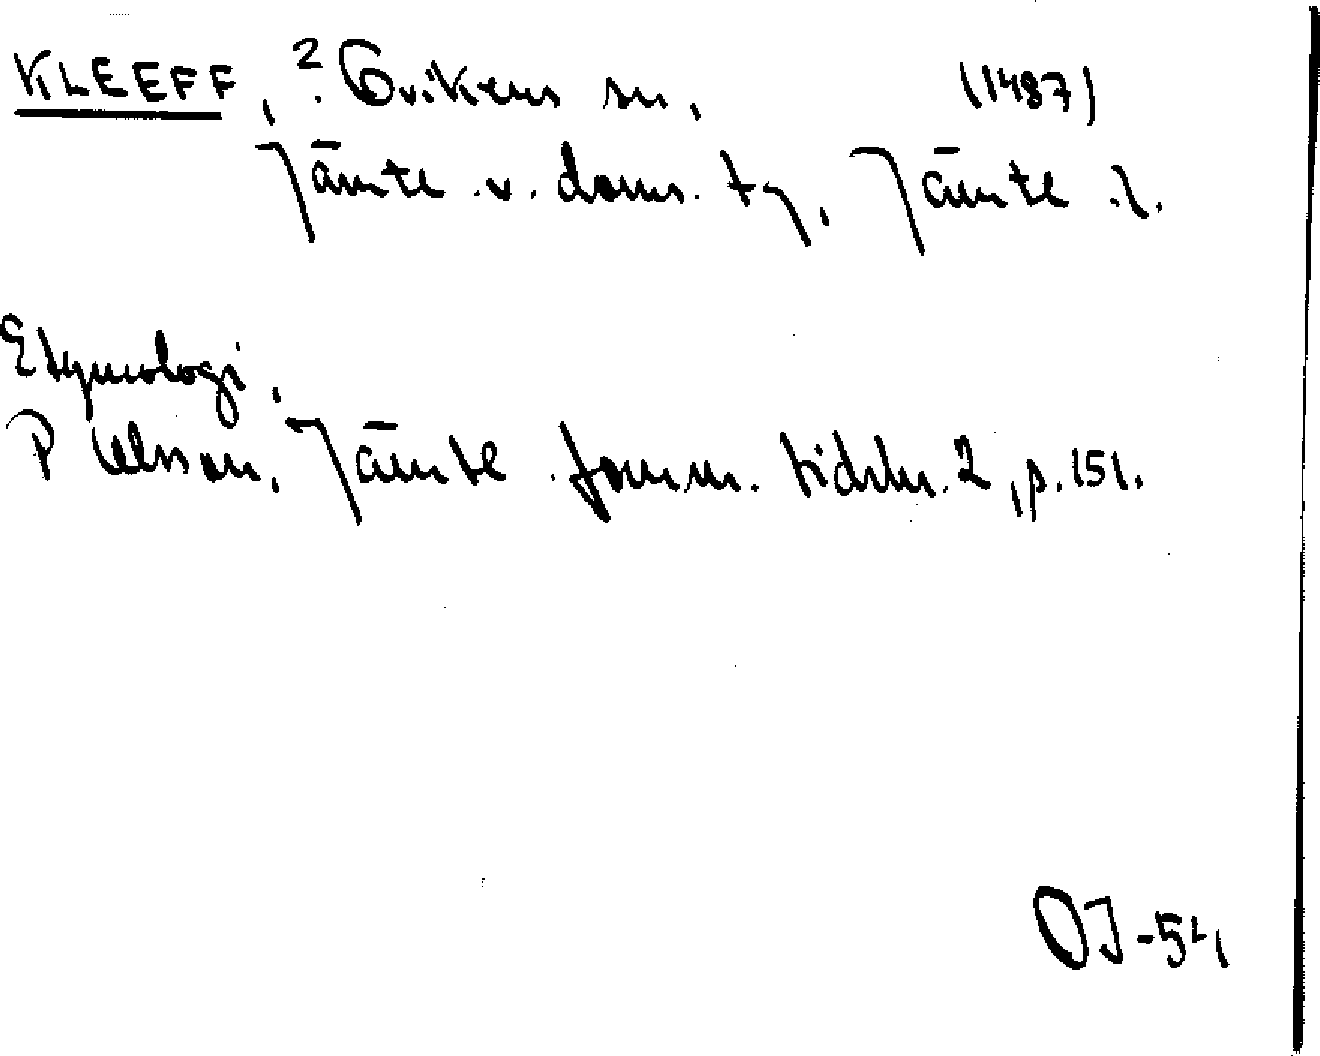 KLEEFF, ? Ovikens sn, (1487)
Jämte . v. doms. tg, Jämte . l.
Etymologi.
P Olsson, Jämte . fornm. tidskr. 2, p. 151.
OJ -54